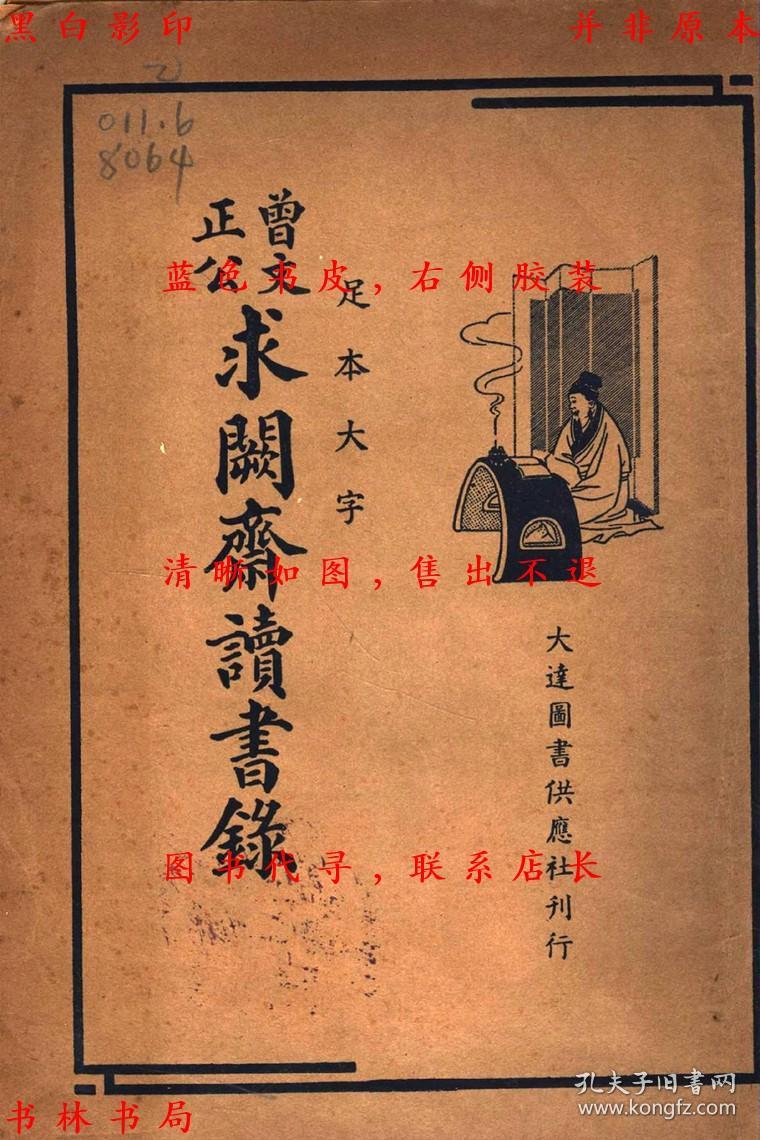 黑白影印
并非原本
乙
011.6
8064
曾文正公
求闕齋讀書錄
足本大字
大達圖書供應社刊行
蓝色书皮，右侧胶装
清晰如图，售出不退
图书代寻，联系店长
书林书局
孔夫子旧书网
www.kongfz.com